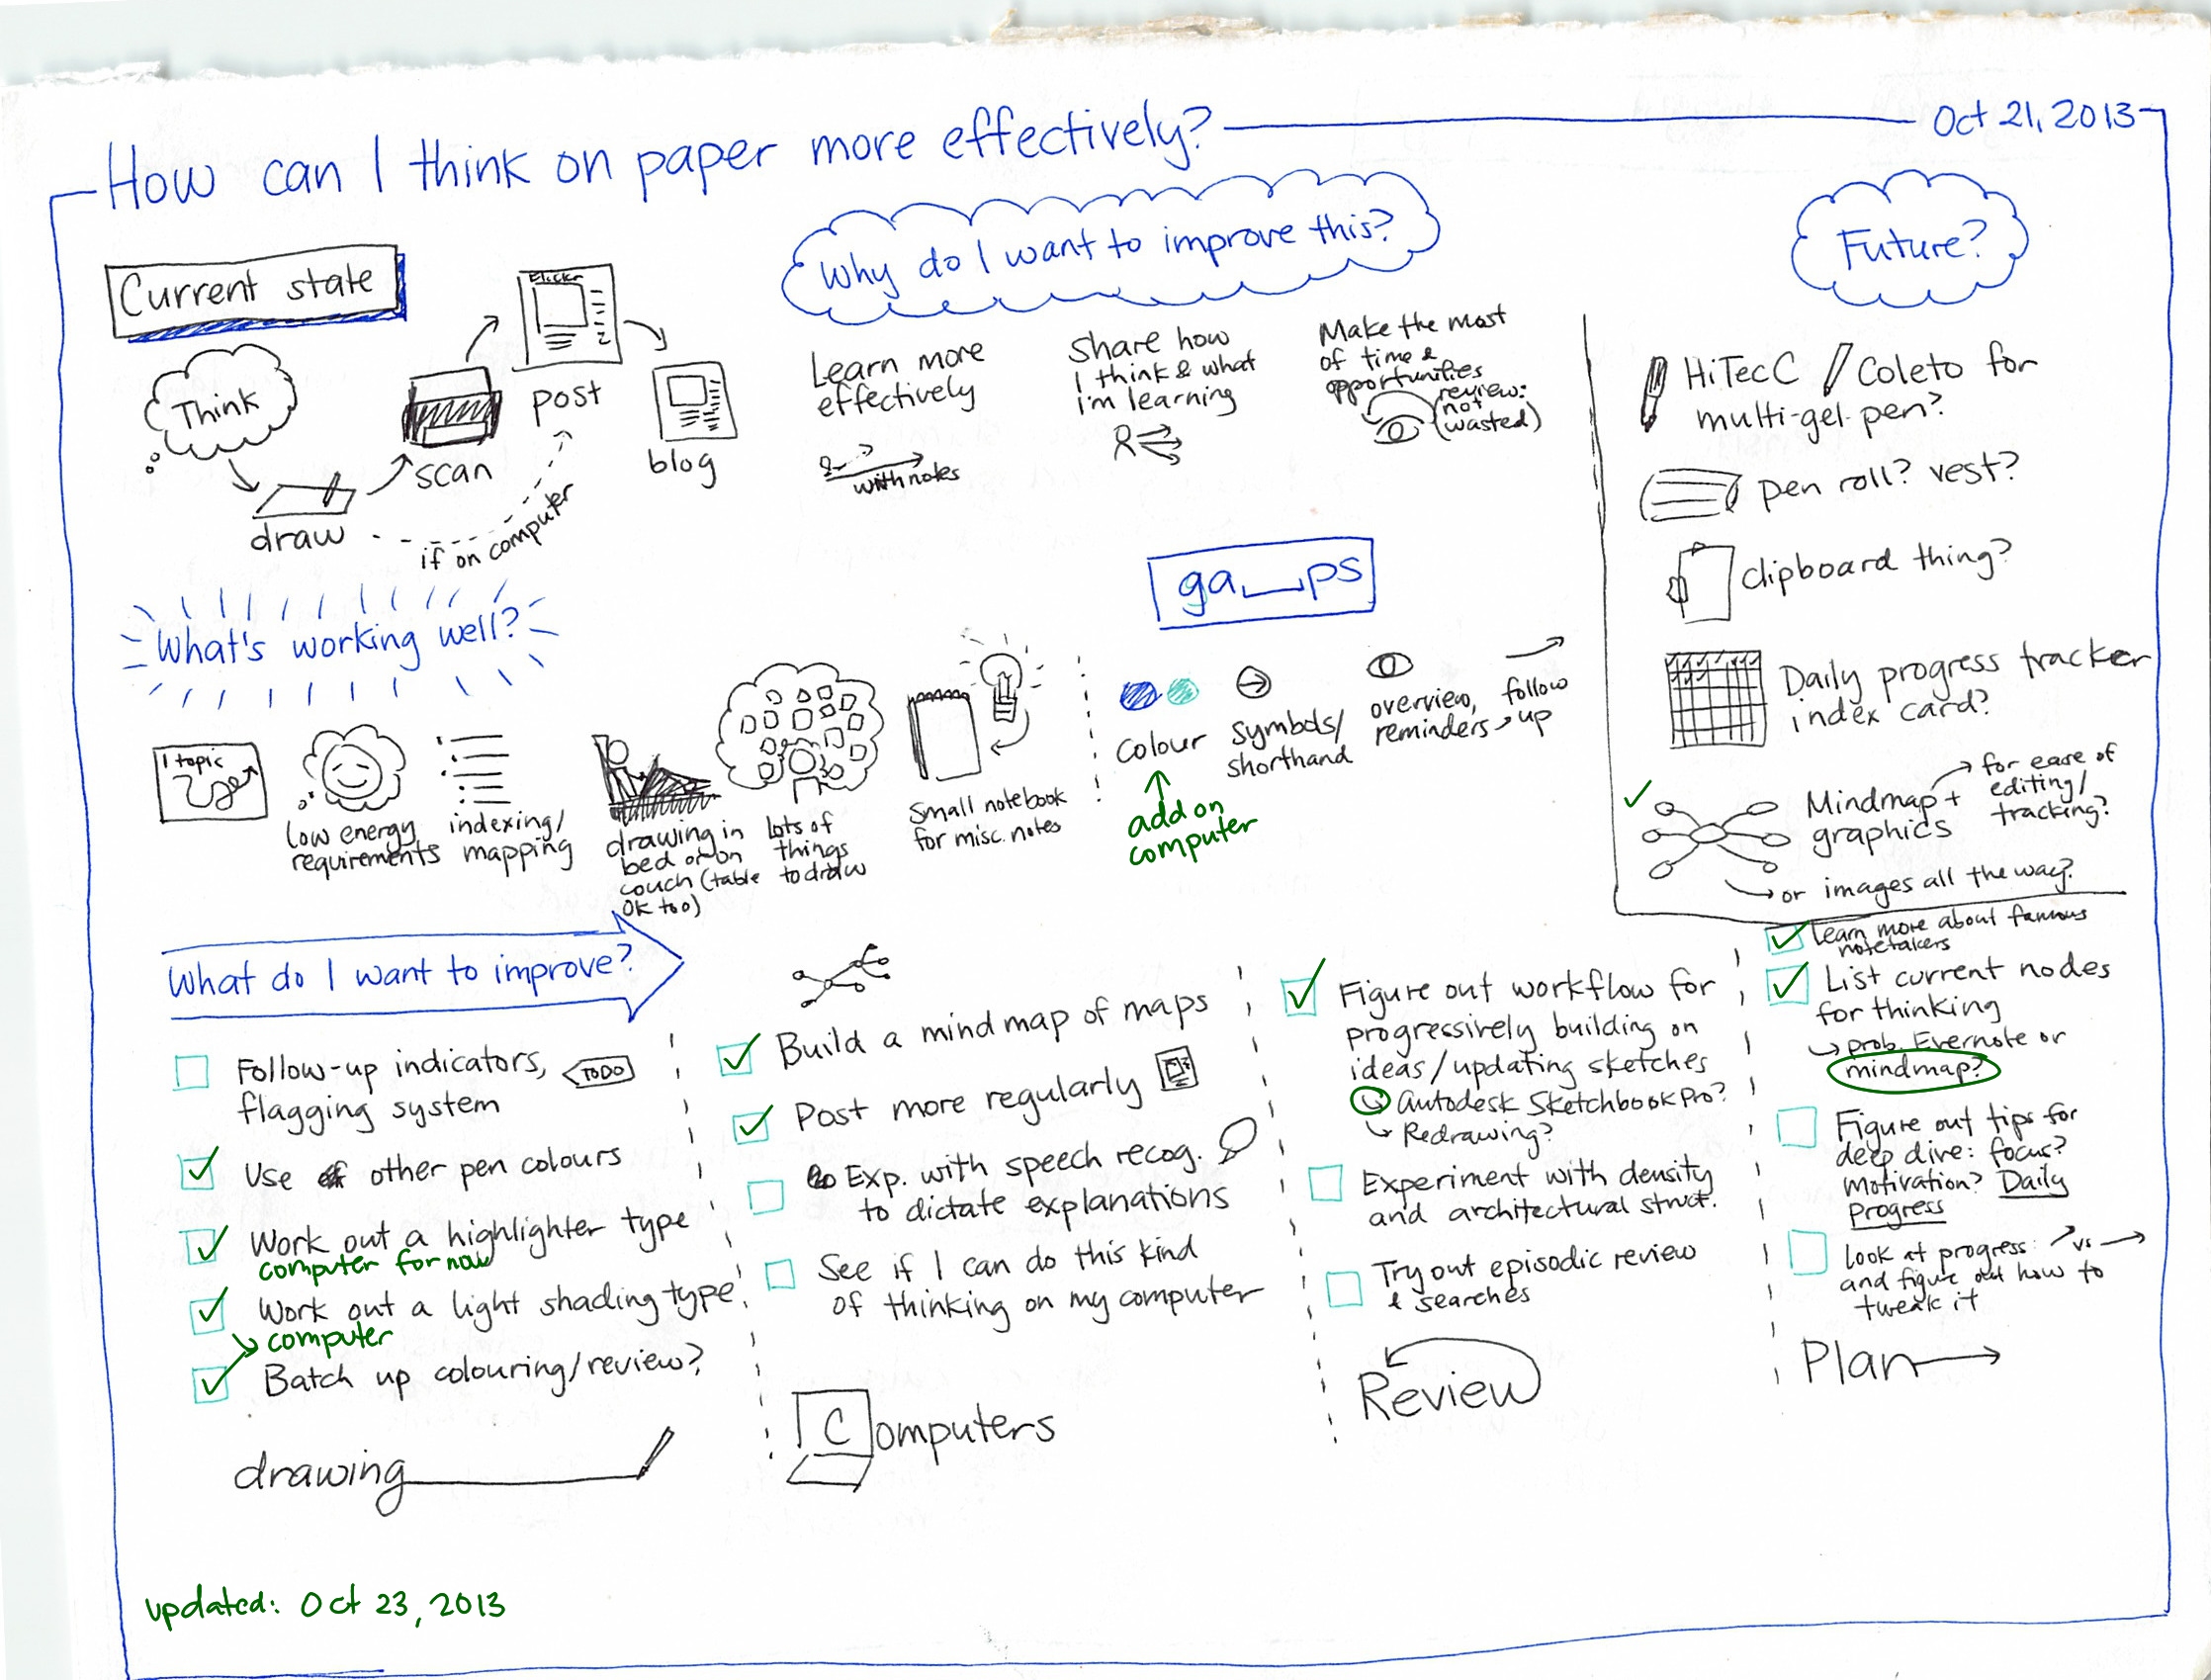 How can I think on paper more effectively?
Oct 21, 2013
Current state
Think
draw
scan
Flickr
post
blog
if on computer
Why do I want to improve this?
Learn more
effectively
with notes
Share how
I think & what
I'm learning
Make the most
of time &
opportunities
review:
(not
wasted)
Future?
HiTecC / Coleto for
multi-gel-pen?
pen roll? vest?
clipboard thing?
Daily progress tracker
index card?
Mindmap +
graphics
for ease of
editing/
tracking?
or images all the way?
What's working well?
1 topic
low energy
requirements
indexing/
mapping
drawing in
bed or on
couch (table
OK too)
lots of
things
to draw
Small notebook
for misc. notes
ga ps
colour
add on
computer
symbols/
shorthand
overview,
reminders,
follow
up
What do I want to improve?
Follow-up indicators,
TODO
flagging system
Use other pen colours
Work out a highlighter type
computer for now
Work out a light shading type
computer
Batch up colouring/review?
drawing
Build a mind map of maps
Post more regularly
Exp. with speech recog.
to dictate explanations
See if I can do this kind
of thinking on my computer
Computers
Figure out workflow for
progressively building on
ideas/updating sketches
Autodesk SketchbookPro?
Redrawing?
Experiment with density
and architectural struct.
Try out episodic review
& searches
Review
Learn more about famous
notetakers
List current nodes
for thinking
prob. Evernote or
mindmap?
Figure out tips for
deep dive: focus?
motivation? Daily
Progress
Look at progress: vs
and figure out how to
tweak it
Plan
updated: Oct 23, 2013